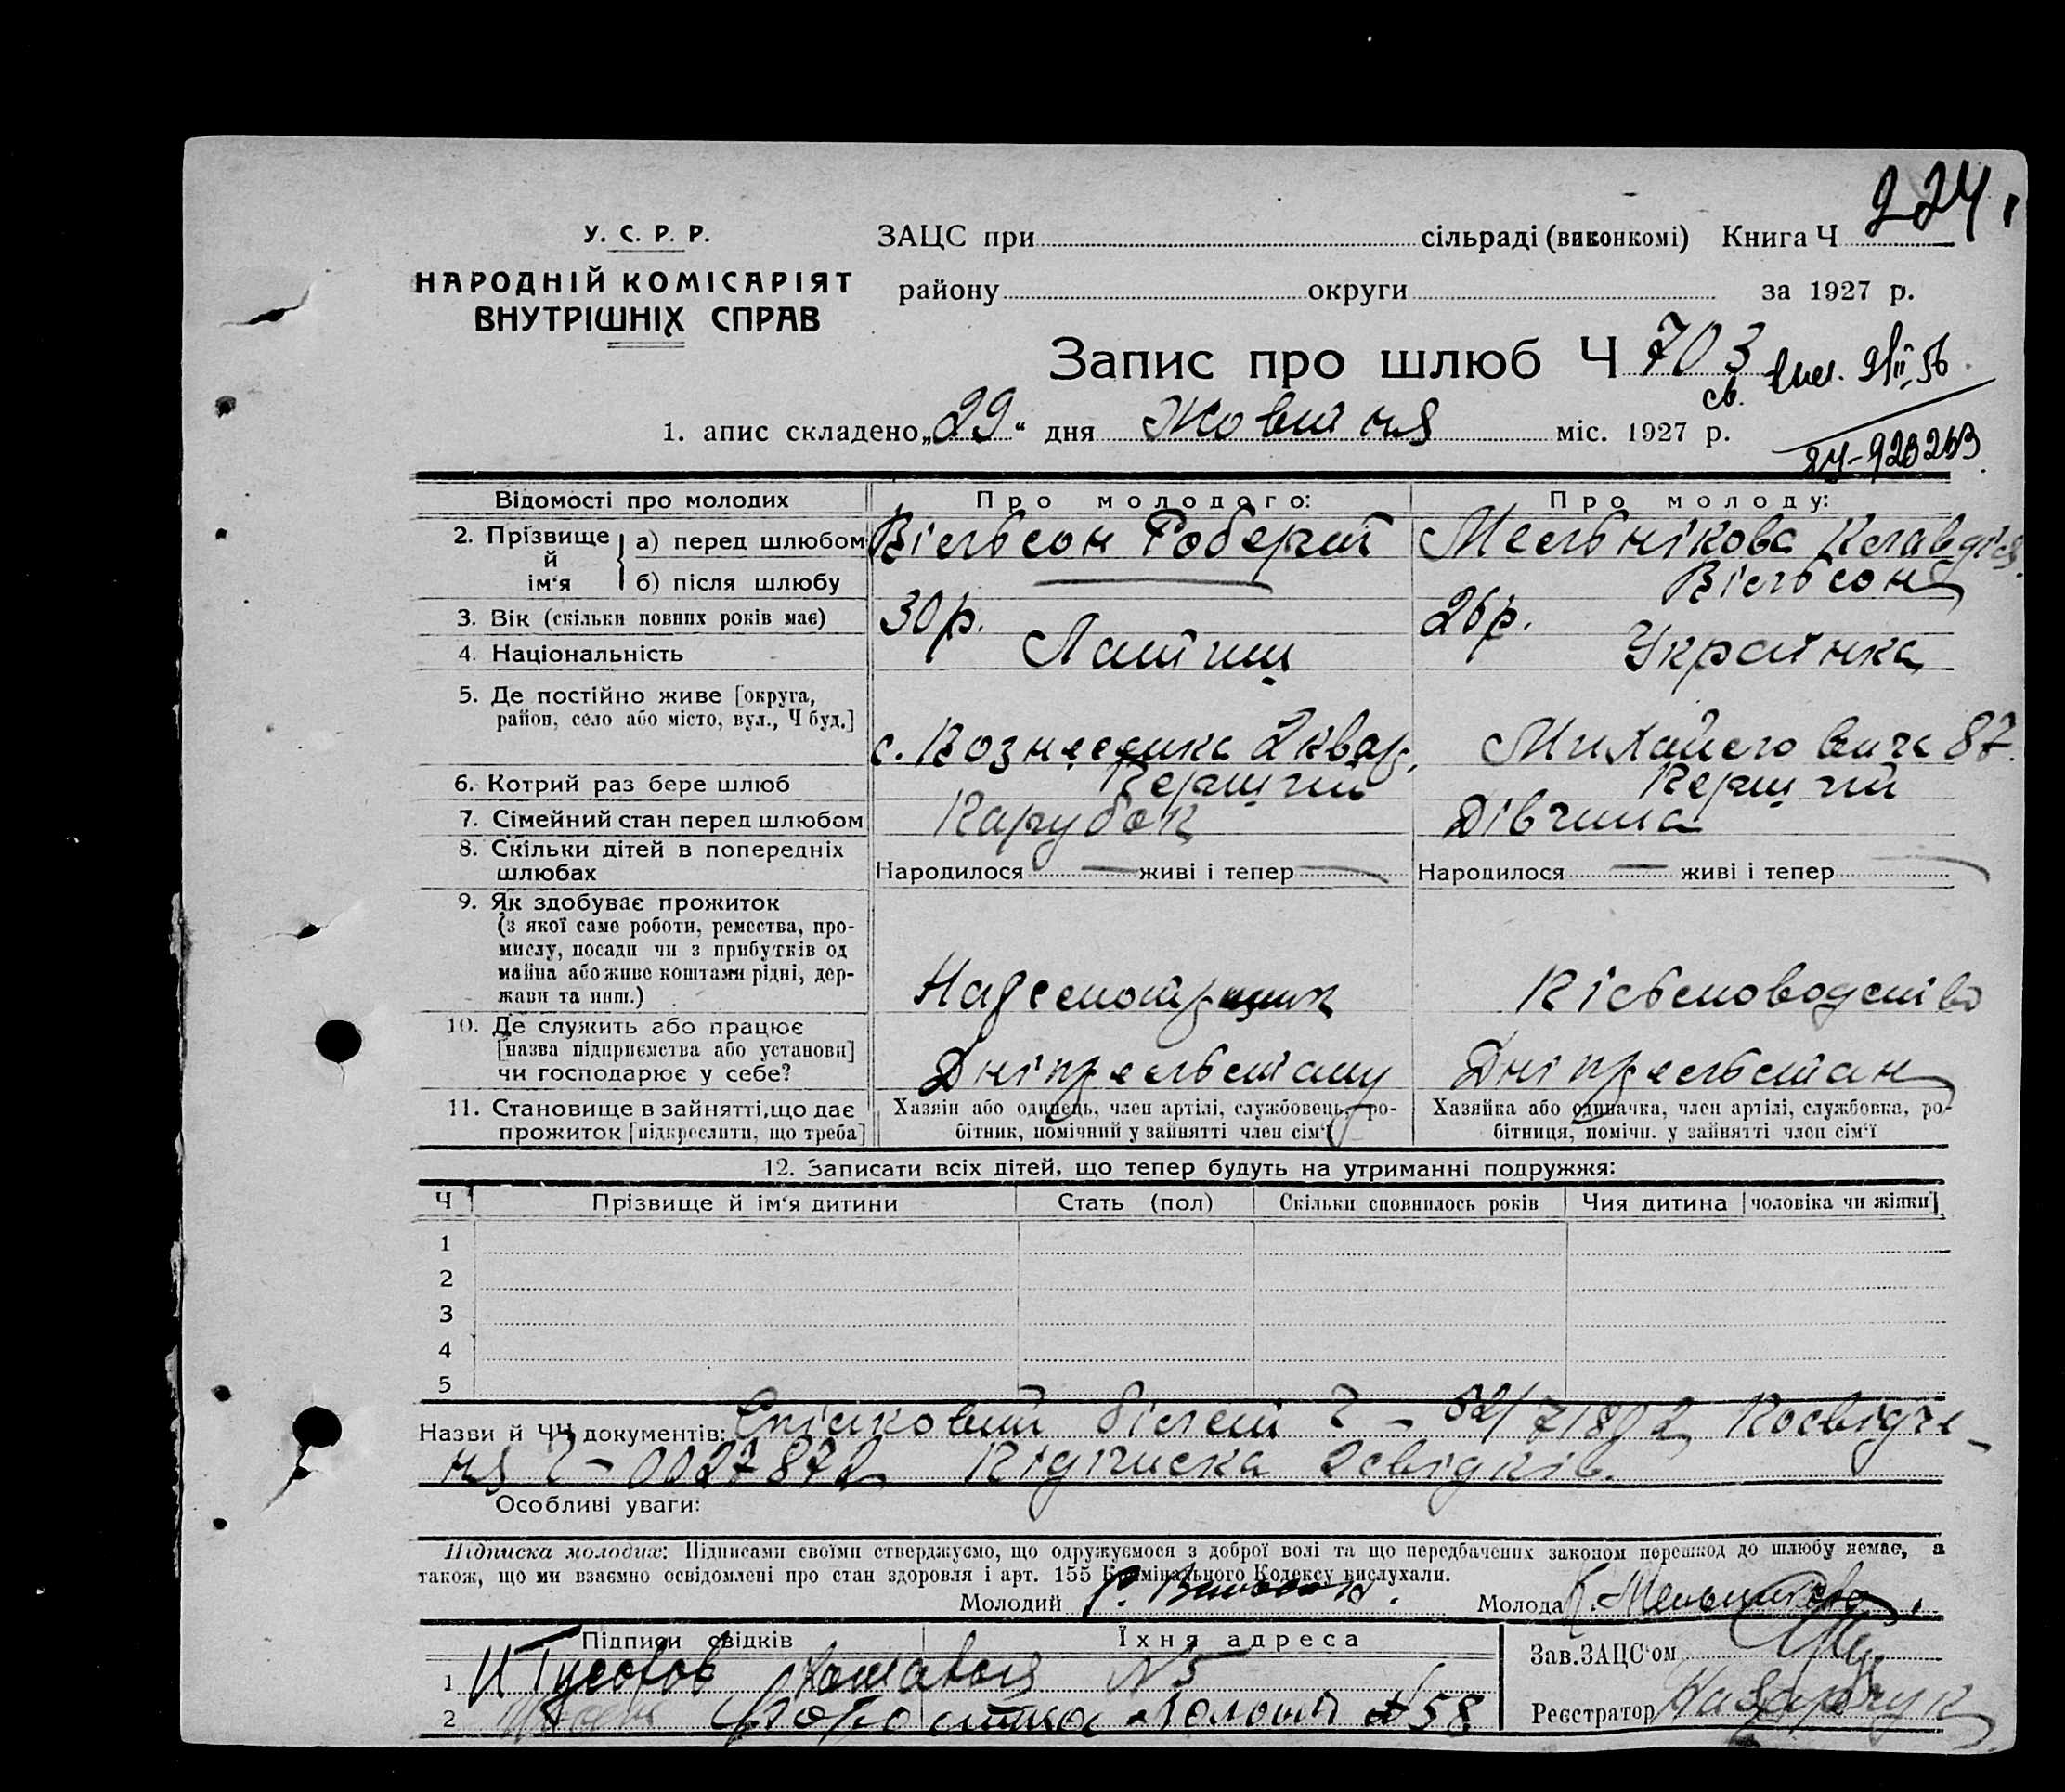 224.
У. С. Р. Р.
НАРОДНІЙ КОМІСАРІЯТ
ВНУТРІШНІХ СПРАВ
ЗАЦС при сільраді (виконкомі) Книга Ч
району округи за 1927 р.
Запис про шлюб Ч 703
1. апис складено „29“ дня Жовтня міс. 1927 р.
Відомості про молодих
Про молодого:
Про молоду:
2. Прізвище й ім‘я
а) перед шлюбом
Вільсон Роберт
Мельнікова Клавдія
б) після шлюбу
Вільсон
3. Вік (скільки повних років має)
30 р.
26 р.
4. Національність
Латиш
Українка
5. Де постійно живе [округа,
район, село або місто, вул., Ч буд.]
с. Вознесенка 2 квар.
87
6. Котрий раз бере шлюб
Перший
Перший
7. Сімейний стан перед шлюбом
Парубок
Дівчина
8. Скільки дітей в попередніх
шлюбах
Народилося — живі і тепер —
Народилося — живі і тепер —
9. Як здобуває прожиток
(з якої саме роботи, ремества, про-
мислу, посади чи з прибутків од
майна або живе коштами рідні, дер-
жави та инш.)
Діловодство
10. Де служить або працює
[назва підприємства або установи]
чи господарює у себе?
Дніпрельстану
Дніпрельстан
11. Становище в зайнятті, що дає
прожиток [підкреслити, що треба]
Хазяїн або одинець, член артілі, службовець, ро-
бітник, помічний у зайнятті член сім‘ї
Хазяйка або одиначка, член артілі, службовка, ро-
бітниця, помічн. у зайнятті член сім‘ї
12. Записати всіх дітей, що тепер будуть на утриманні подружжя:
Ч Прізвище й ім‘я дитини Стать (пол) Скільки сповнилось років Чия дитина [чоловіка чи жінки]
1
2
3
4
5
Назви й ЧЧ документів: Спілковий білет Ч – 52/71802 Посвідче-
ня Ч – 0027872 Підписка 2 свідків.
Особливі уваги:
Підписка молодих: Підписами своїми стверджуємо, що одружуємося з доброї волі та що передбачених законом перешкод до шлюбу немає, а
також, що ми взаємно освідомлені про стан здоровля і арт. 155 Кримінального Кодексу вислухали.
Молодий Р. Вильсон.
Молода К. Мельникова
Підписи свідків
Їхня адреса
Зав. ЗАЦС‘ом
1 N 5
2 N 58
Реєстратор